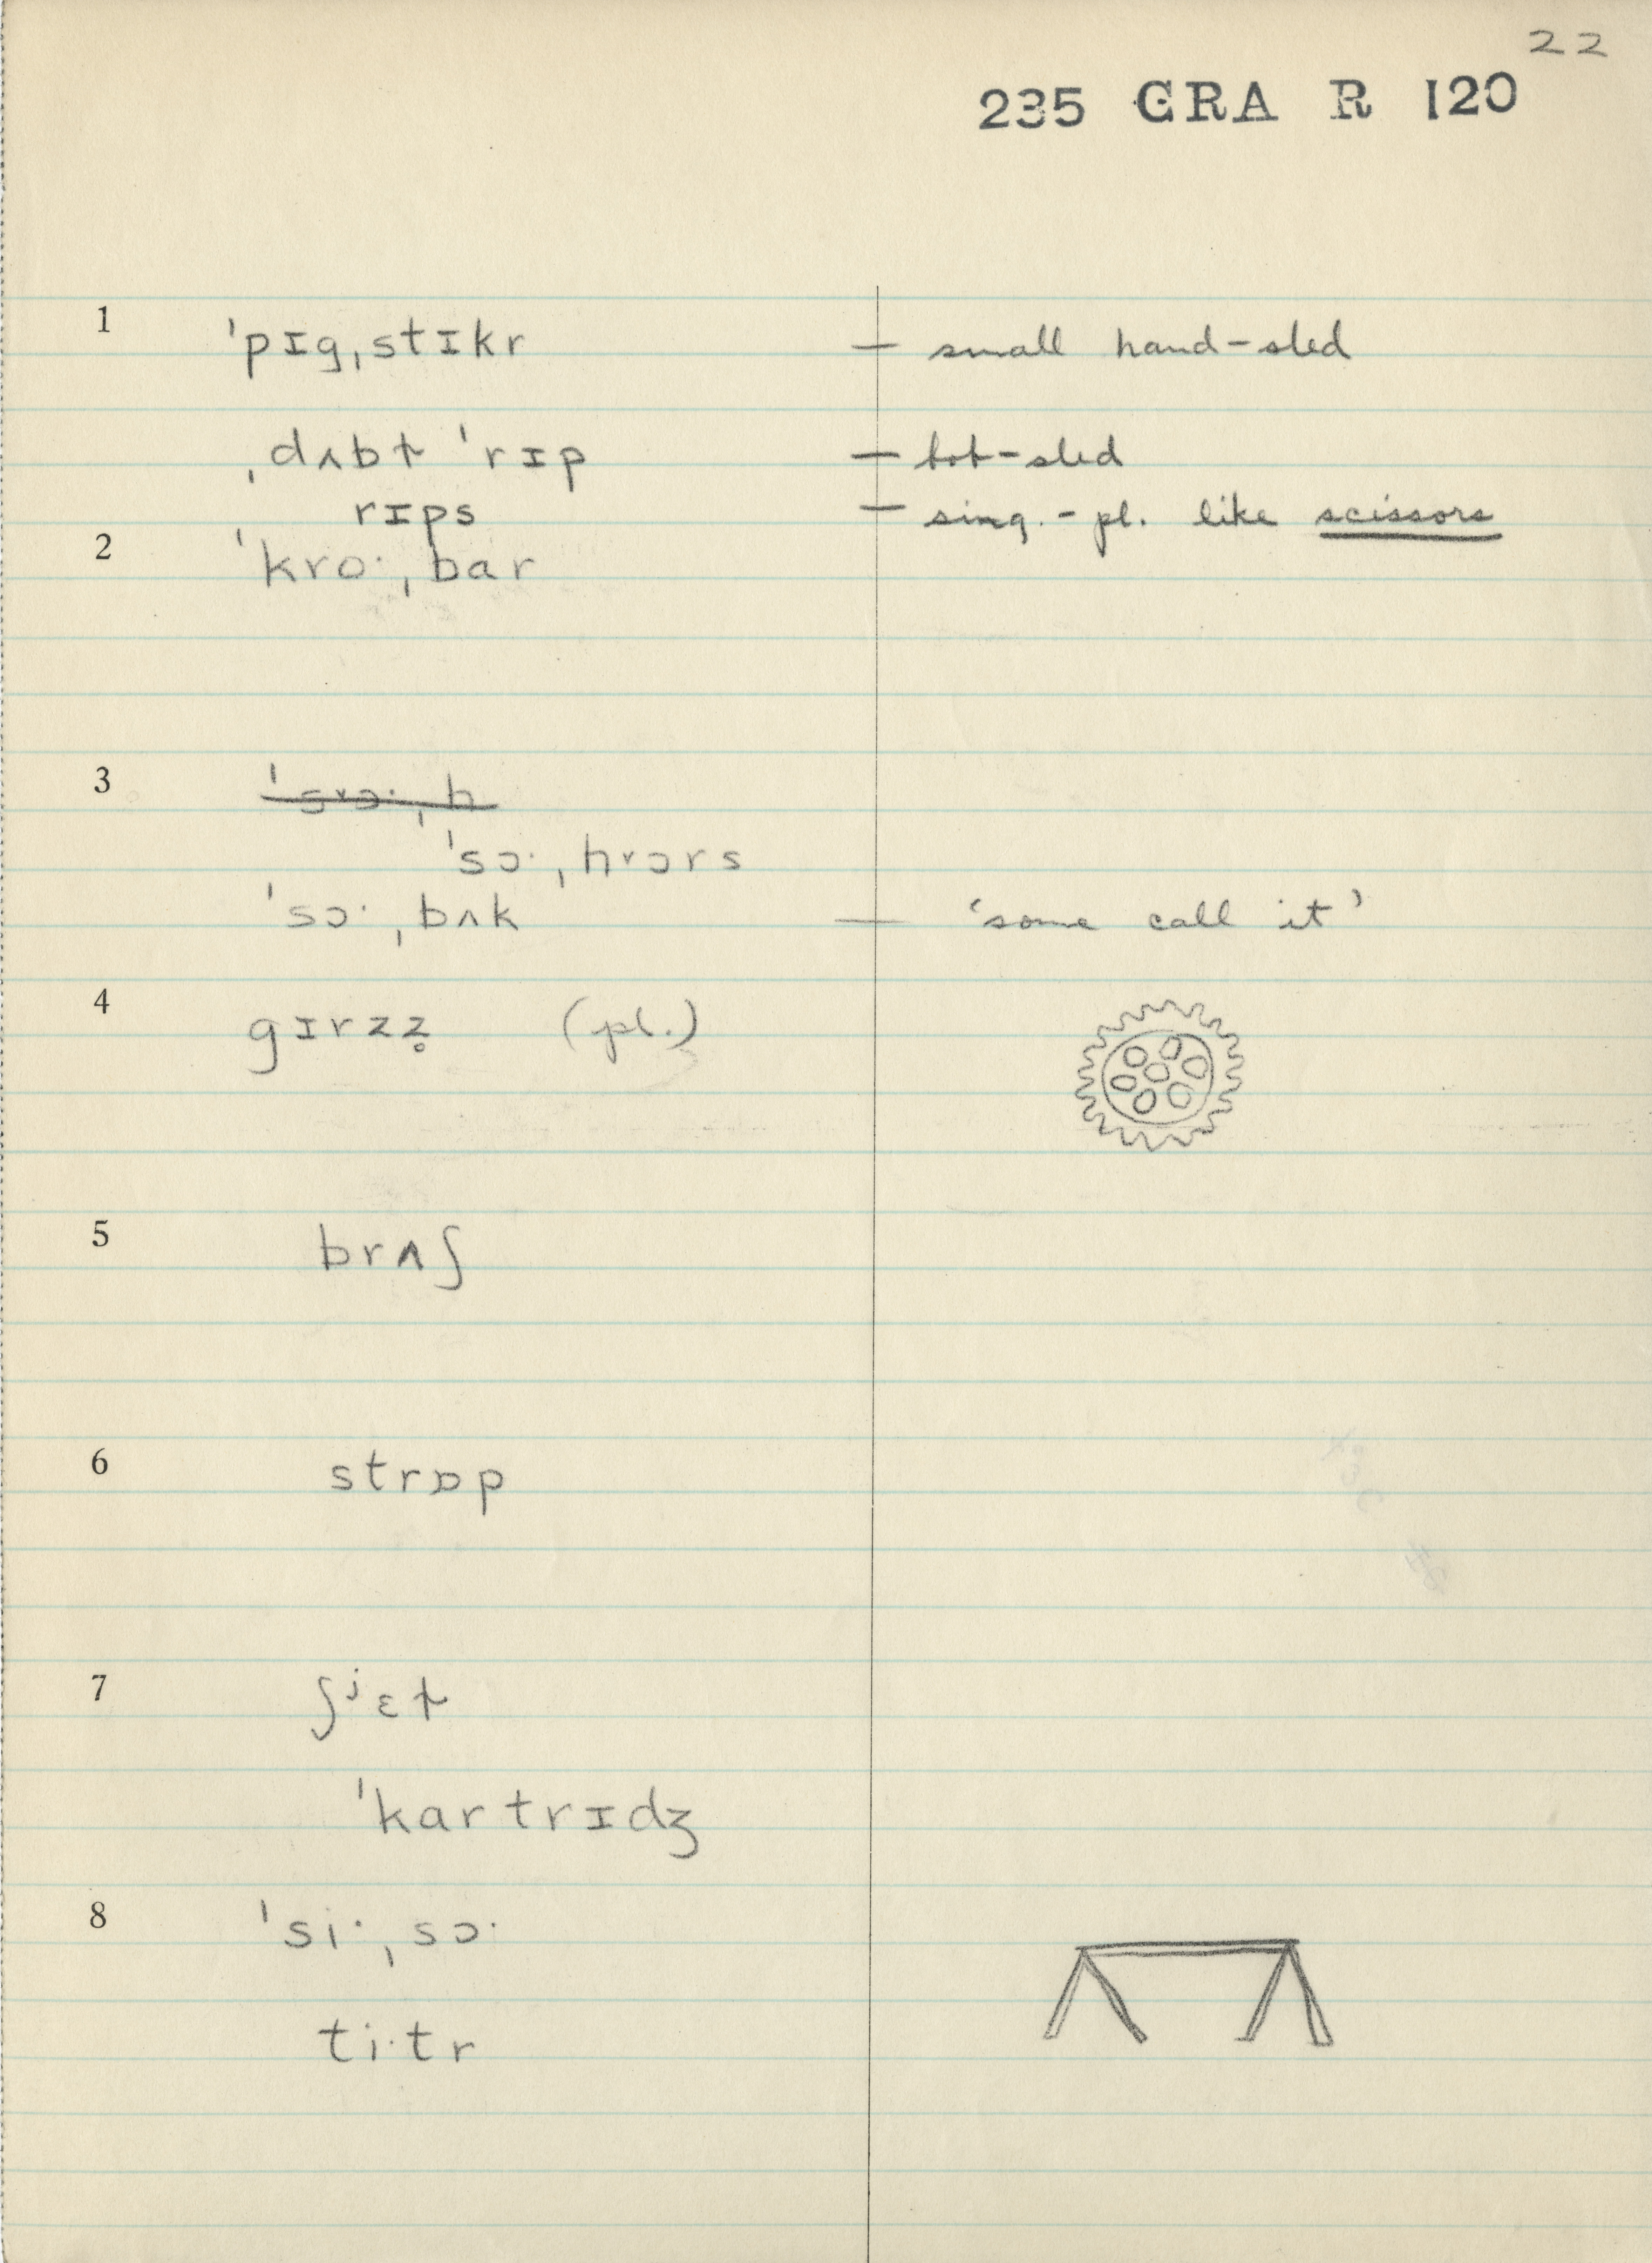 22
235 GRA R 120
1 ˈpɪgˌstɪkr — small hand-sled
ˌdʌbɫ ˈrɪp — bob-sled
rɪps — sing.-pl. like scissors
2 ˈkroˑˌbar
3
ˈsɔˑˌhɔrs
ˈsɔˑˌbʌk — ‘some call it’
4 gɪrzz̥ (pl.)
5 brʌʃ
6 strɒp
7 ʃʲɛɫ
ˈkartrɪdʒ
8 ˈsiˑˌsɔˑ
tiˑtr